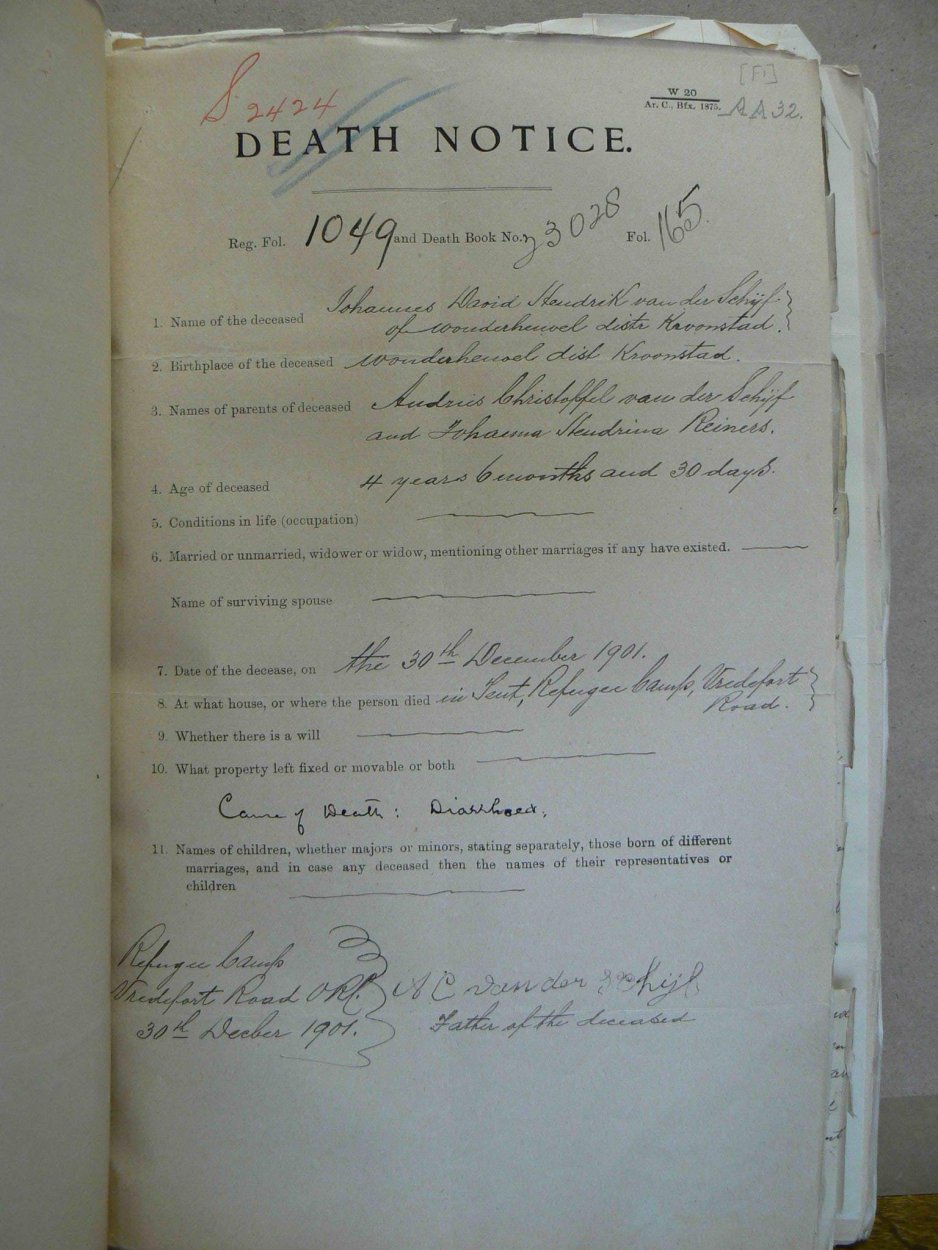 [F1]
S. 2424
W 20
Ar. C., Bfx. 1875.
AA 32.
DEATH NOTICE.
Reg. Fol. 1049 and Death Book No. 23028 Fol. 165.
1. Name of the deceased Johannes David Hendrik van der Schijf
of wonderheuvel distr Kroonstad.
2. Birthplace of the deceased wonderheuvel dist Kroonstad.
3. Names of parents of deceased Andries Christoffel van der Schijf
and Johanna Hendrina Reiners.
4. Age of deceased 4 years 6 months and 30 days.
5. Conditions in life (occupation)
6. Married or unmarried, widower or widow, mentioning other marriages if any have existed.
Name of surviving spouse
7. Date of the decease, on the 30th December 1901.
8. At what house, or where the person died in Tent, Refugee Camp, Vredefort
Road.
9. Whether there is a will
10. What property left fixed or movable or both
Cause of Death: Diarrhoea.
11. Names of children, whether majors or minors, stating separately, those born of different
marriages, and in case any deceased then the names of their representatives or
children
Refugee Camp
Vredefort Road ORC. A C van der Schijf
30th Decber 1901. Father of the deceased